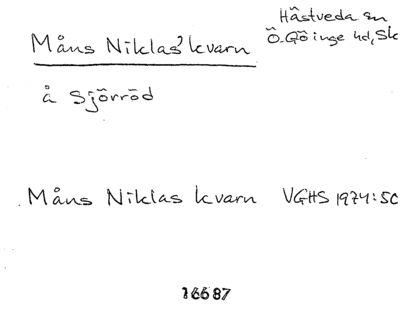 Måns Niklas' kvarn
Hästveda sn
Ö. Göinge hd, Sk
å Sjörröd
Måns Niklas kvarn VGHS 1974:50
16687